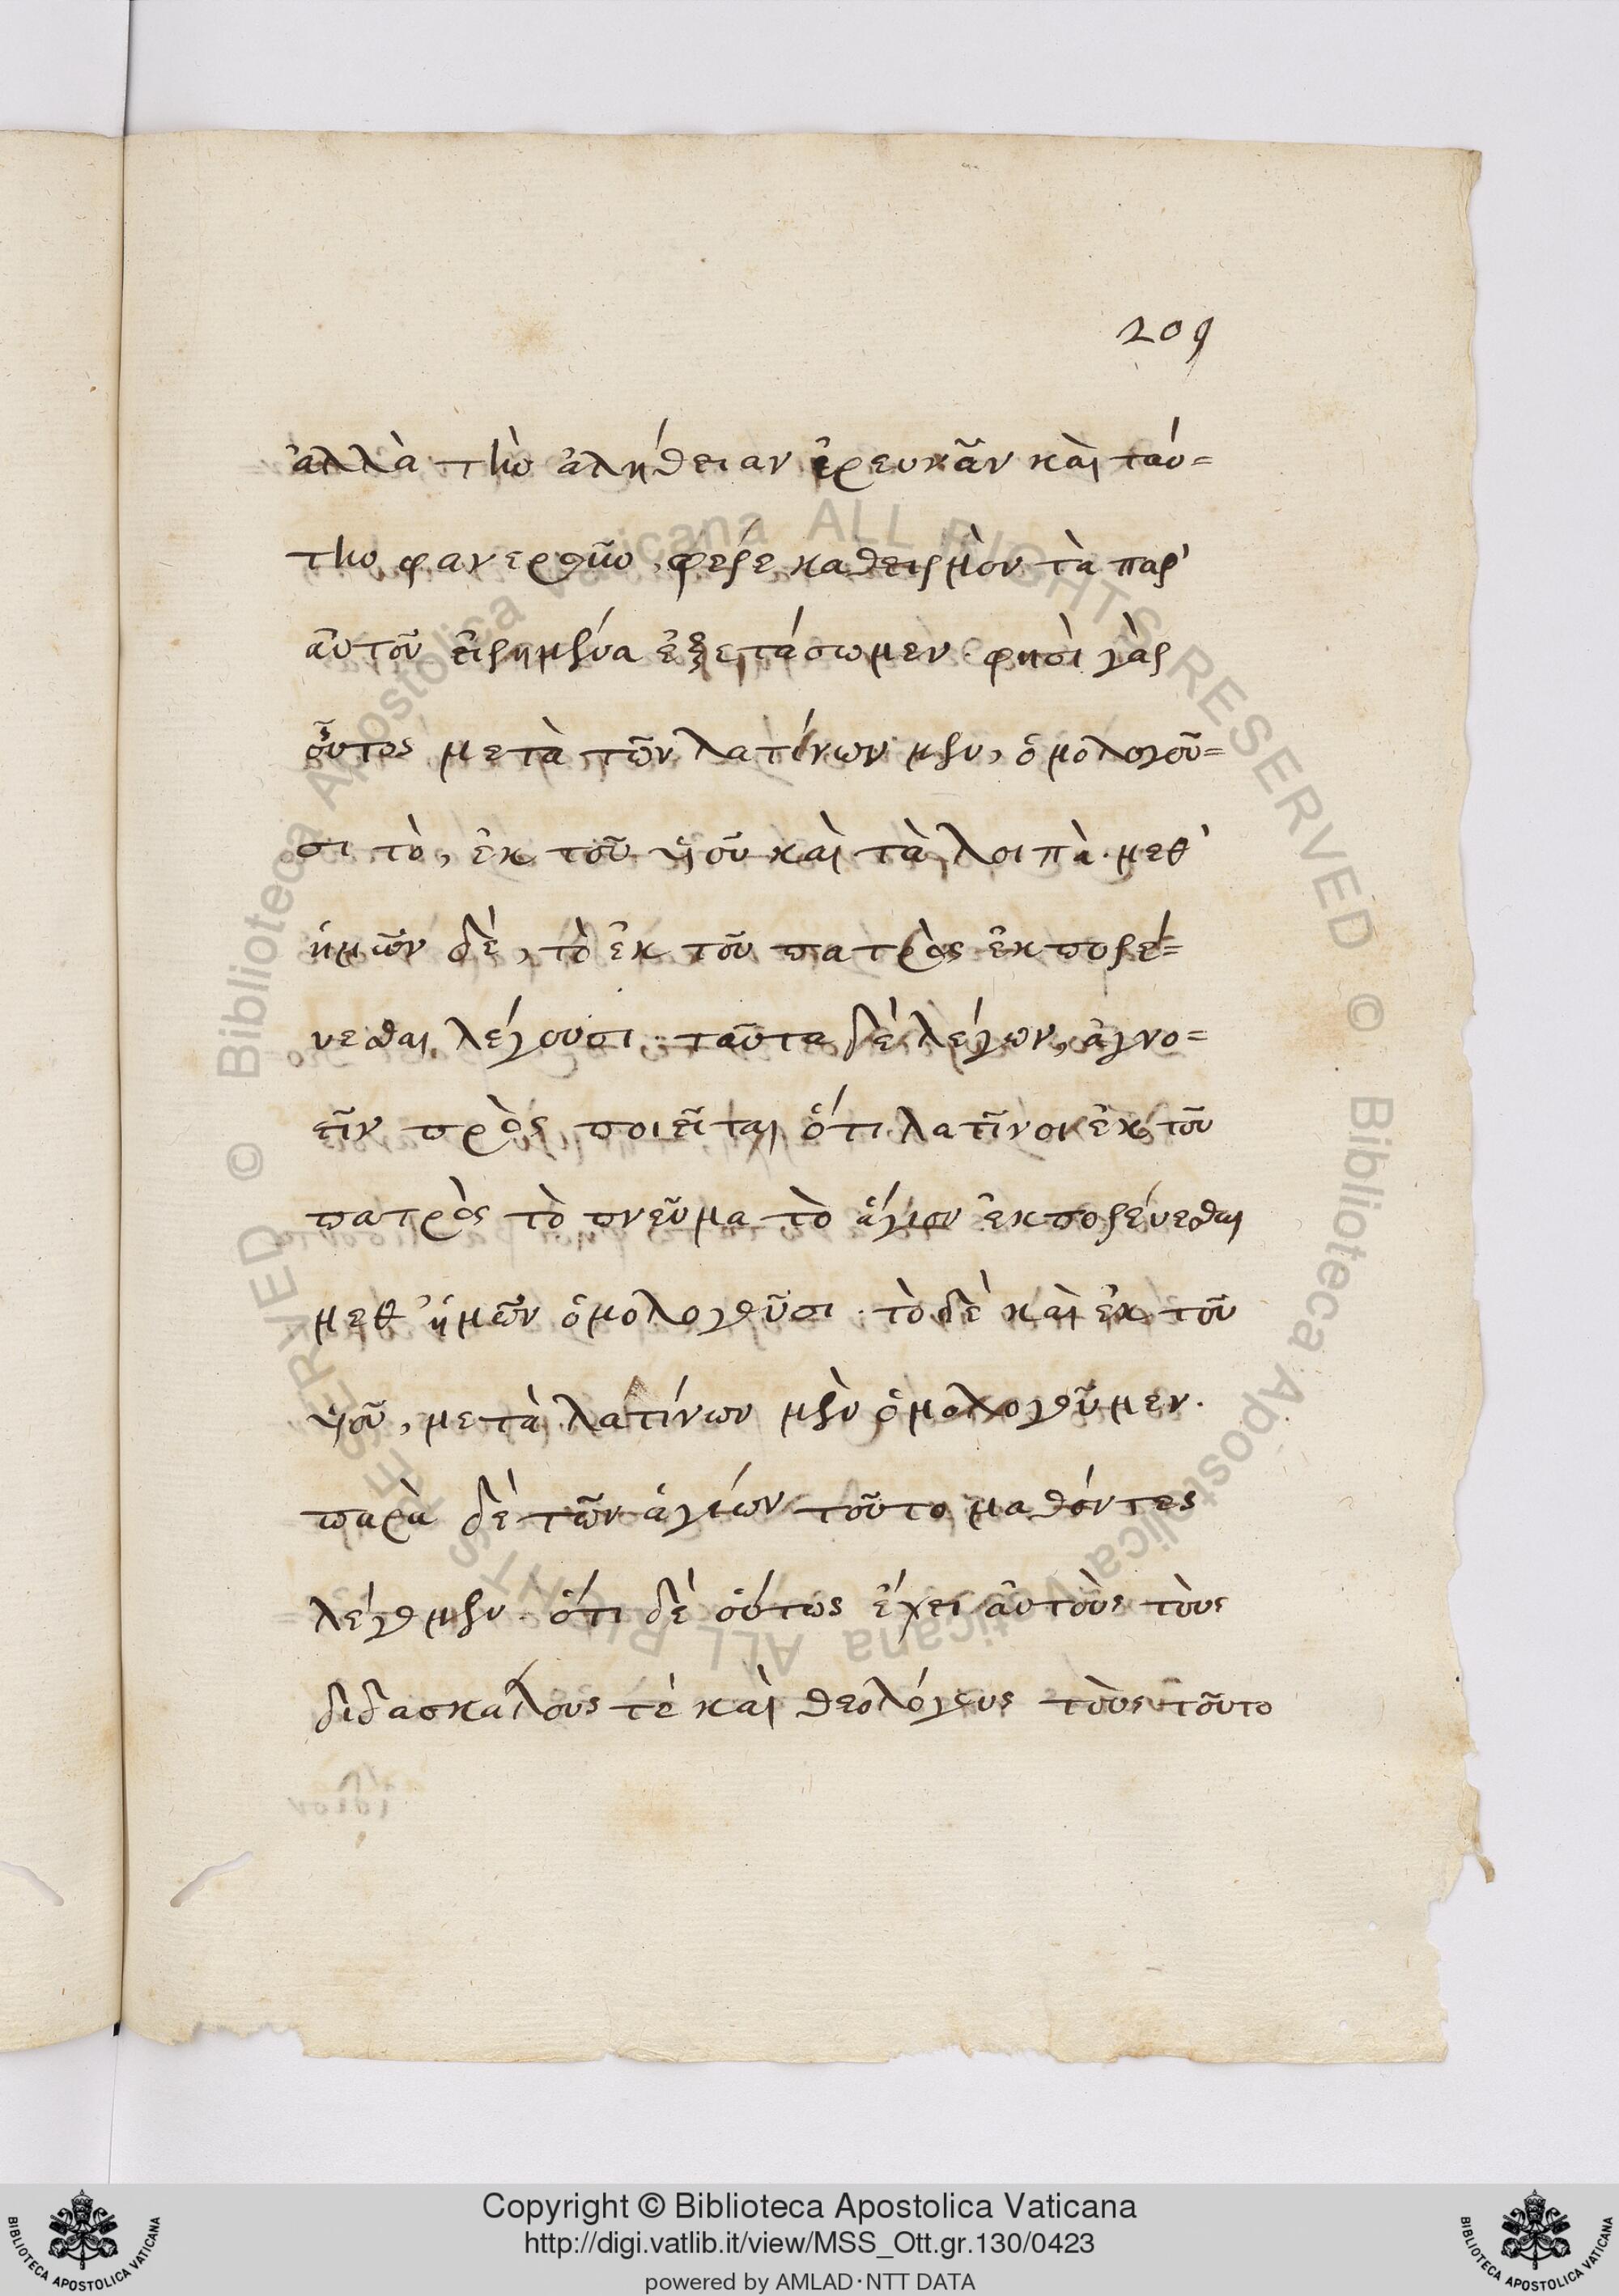 209
ἀλλὰ τὴν ἀλήθειαν ἐρευνᾶν καὶ ταύ=
την φανεροῦν, φέρε καθειρμὸν τὰ παρ'
αὐτοῦ εἰρημένα ἐξετάσωμεν. φησὶ γὰρ
οὗτος μετὰ τῶν λατίνων μὲν, ὁμολογοῦ=
σι τὸ, ἐκ τοῦ ὑιοῦ καὶ τὰ λοιπὰ. μεθ'
ἡμῶν δὲ, τὸ ἐκ τοῦ πατρὸς ἐκπορεύ=
υεσθαι λέγουσι. ταῦτα δὲ λέγων, ἀγνο=
εῖν πρὸς ποιεῖται ὅτι λατῖνοι ἐκ τοῦ
πατρὸς τὸ πνεῦμα τὸ ἅγιον ἐκπορεύεσθαι
μεθ' ἡμῶν ὁμολογοῦσι. τὸ δὲ καὶ ἐκ τοῦ
ὑιοῦ, μετὰ λατίνων μὲν ὁμολογοῦμεν.
παρὰ δὲ τῶν ἁγίων τοῦτο μαθόντες
λέγομεν. ὅτι δὲ οὕτως ἔχει αὐτοὺς τοὺς
διδασκάλους τὲ καὶ θεολόγους τοὺς τοῦτο
© Biblioteca Apostolica Vaticana ALL RIGHTS RESERVED © Biblioteca Apostolica Vaticana ALL RIGHTS RESERVED
Copyright © Biblioteca Apostolica Vaticana
http://digi.vatlib.it/view/MSS_Ott.gr.130/0423
powered by AMLAD·NTT DATA
BIBLIOTECA APOSTOLICA VATICANA
BIBLIOTECA APOSTOLICA VATICANA